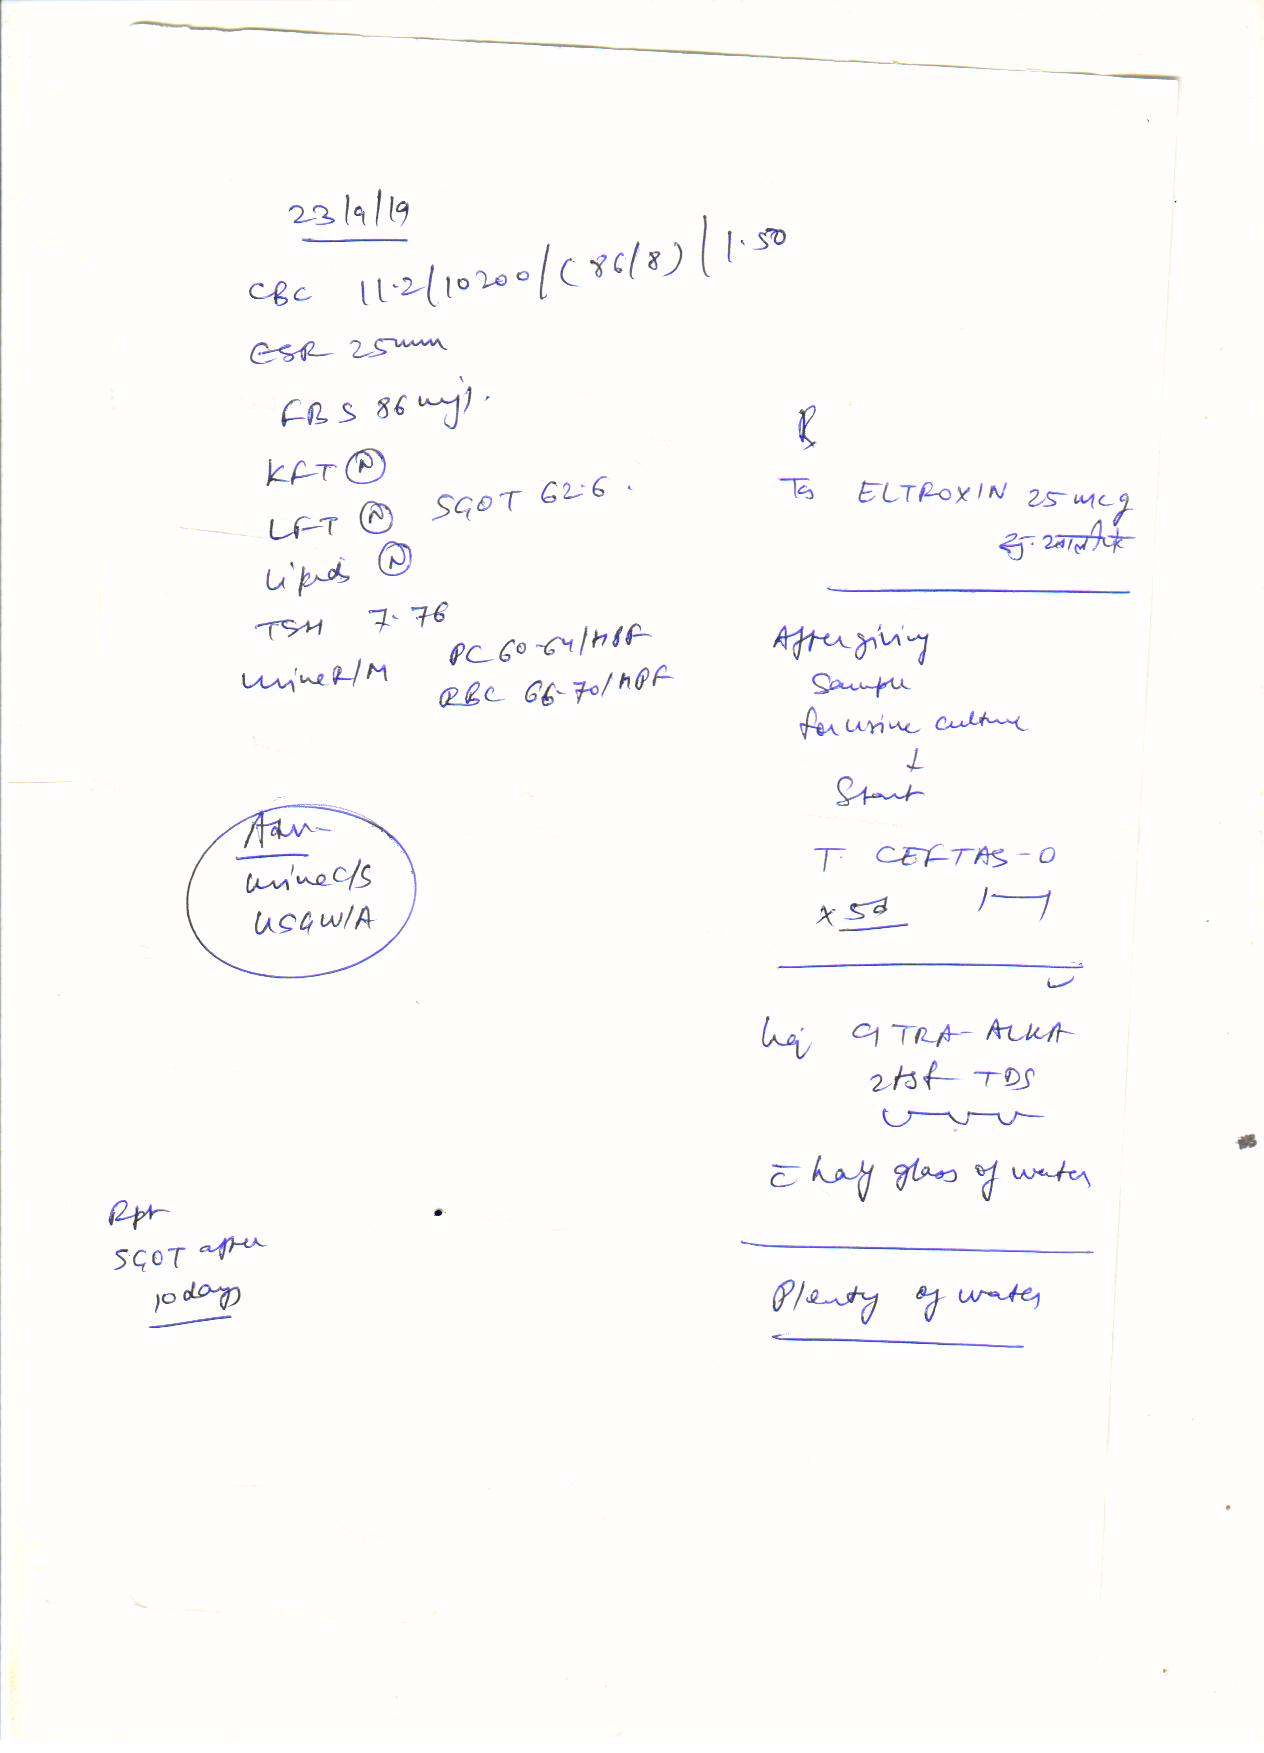 23/9/19
CBC 11.2/10200/(86/8)/1.50
ESR 25mm
FBS 86 mg%.
KFT (N)
LFT (N) SGOT 62.6.
Lipids (N)
TSH 7.76
urine R/M PC 60-64/HPF
RBC 66-70/HPF
Adv-
urine C/S
USG W/A
Rpt
SGOT after
10 days
R
Tab ELTROXIN 25 mcg
After giving
Sample
for urine culture
↓
Start
T. CEFTAS-O
x 5d 1—1
liq CITRA-ALKA
2tsf TDS
c̄ half glass of water
Plenty of water